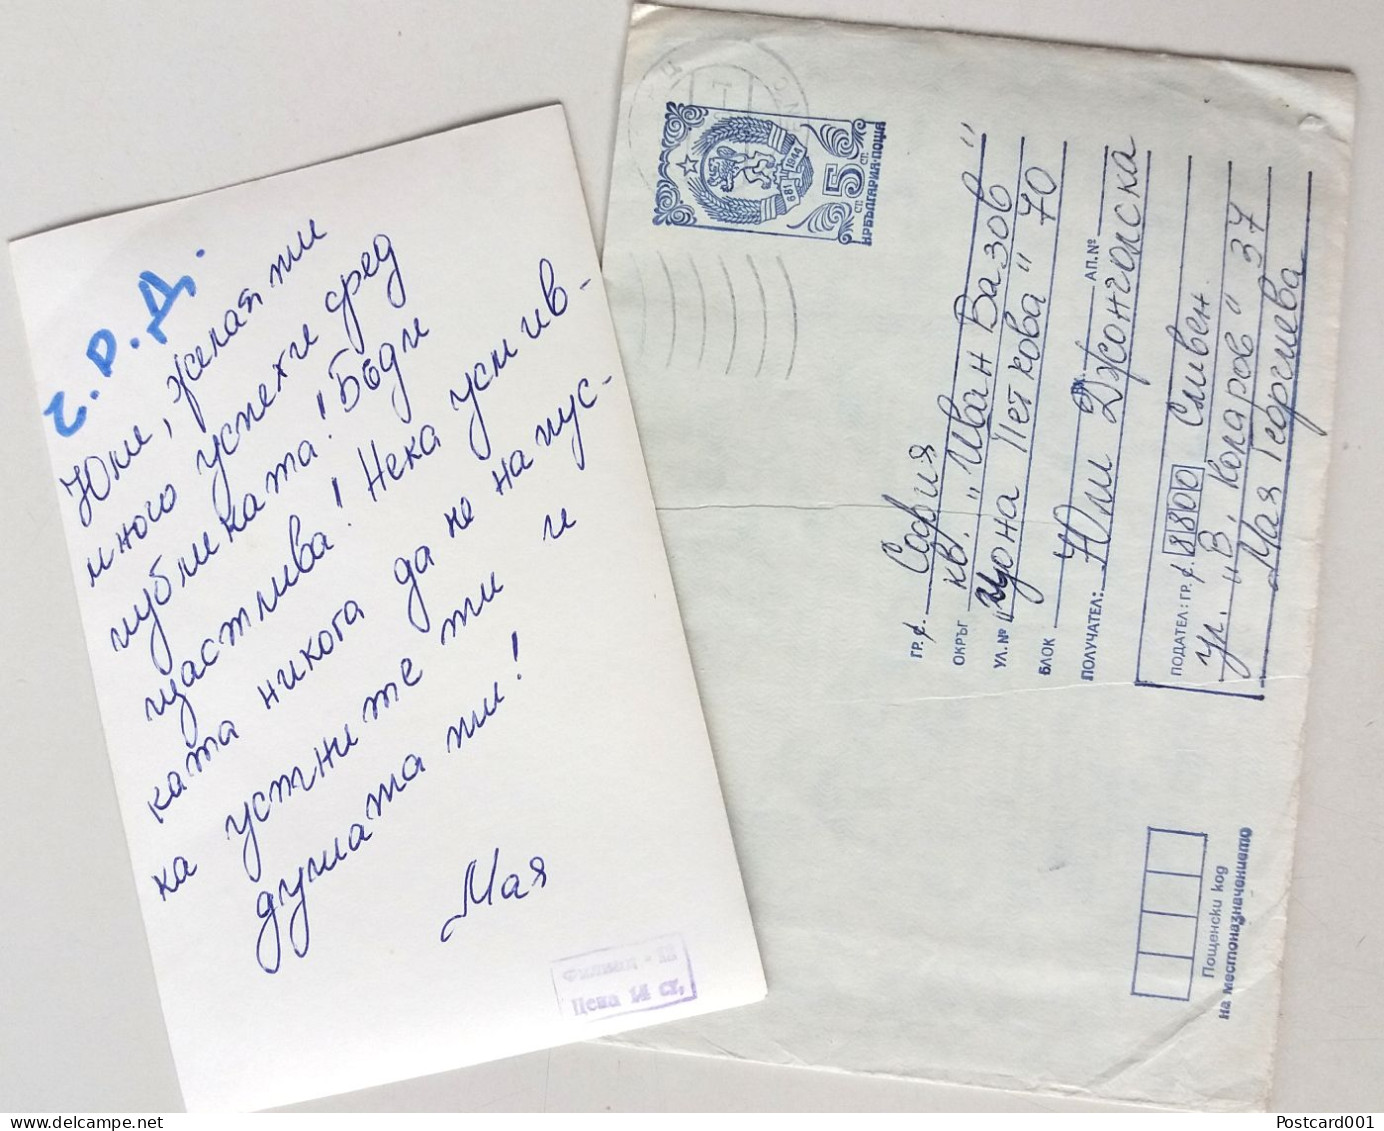 Ч. Р. Д.
Юли, желая ти
много успехи сред
публиката! Бъди
щастлива! Нека усмив-
ката никога да не напус-
ка устните ти и
душата ти!
Мая
Цена 14 ст.
5
СТ СТ
НРБЪЛГАРИЯ·ПОЩА
681 1944
ГР. с. София
ОКРЪГ кв. "Иван Вазов"
УЛ. № "Цона Петкова" 70
БЛОК ВХ. АП. №
ПОЛУЧАТЕЛ: Юли Джонголска
ПОДАТЕЛ: ГР. с. 8800 Сливен
ул. "В. Коларов" 37
Мая Георгиева
Пощенски код
на местоназначението
Postcard001